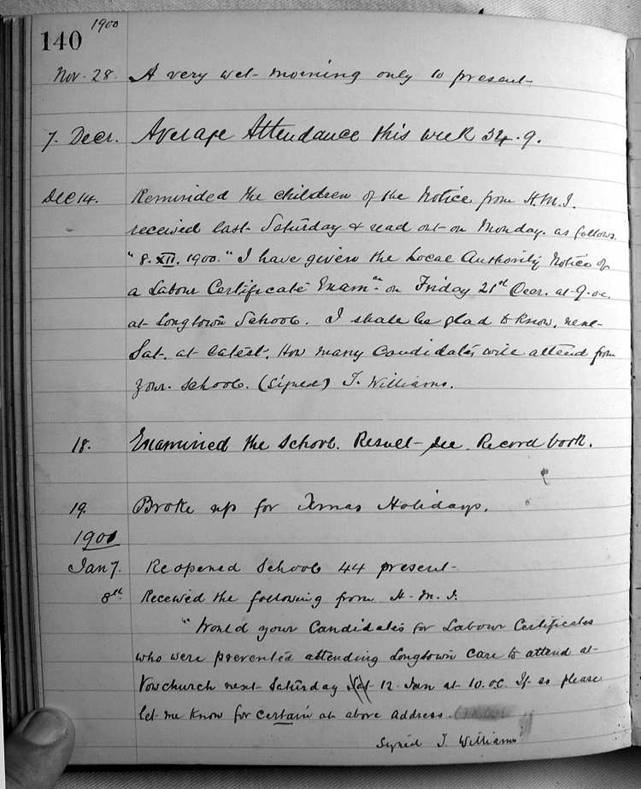 140 1900
Nov. 28. A very wet morning only 10 present
7. Decr. Average Attendance this week 34.9.
Dec 14. Reminded the children of the Notice from H.M.I.
received last Saturday & read out on Monday. as follows
"8. XII. 1900." I have given the Local Authority Notice of
a Labour Certificate Exam.n on Friday 21st Decr. at 9. oc.
at Longtown School. I shall be glad to know, next
Sat. at latest, How many candidates will attend from
your school. (Signed) T. Williams.
18. Examined the School. Result see Record book.
19. Broke up for Xmas Holidays.
1901
Jan 7. Reopened School 44 present
8th Received the following from H.M.I.
"Would your Candidates for Labour Certificates
who were prevented attending Longtown care to attend at
Vowchurch next Saturday 12 Jan at 10. o.c. If so please
let me know for certain at above address.
Signed T. Williams